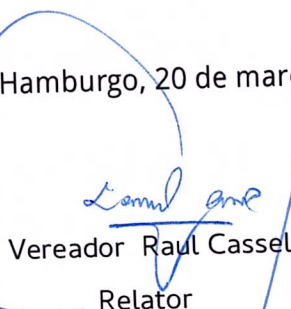 Hamburgo, 20 de mar
Vereador Raul Cassel
Relator